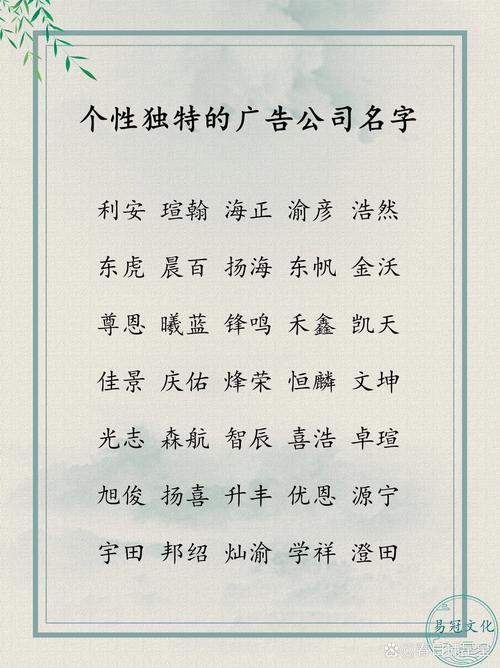 个性独特的广告公司名字
利安 瑄翰 海正 渝彦 浩然
东虎 晨百 扬海 东帆 金沃
尊恩 曦蓝 锋鸣 禾鑫 凯天
佳景 庆佑 烽荣 恒麟 文坤
光志 森航 智辰 喜浩 卓瑄
旭俊 扬喜 升丰 优恩 源宁
宇田 邦绍 灿渝 学祥 澄田
易冠文化